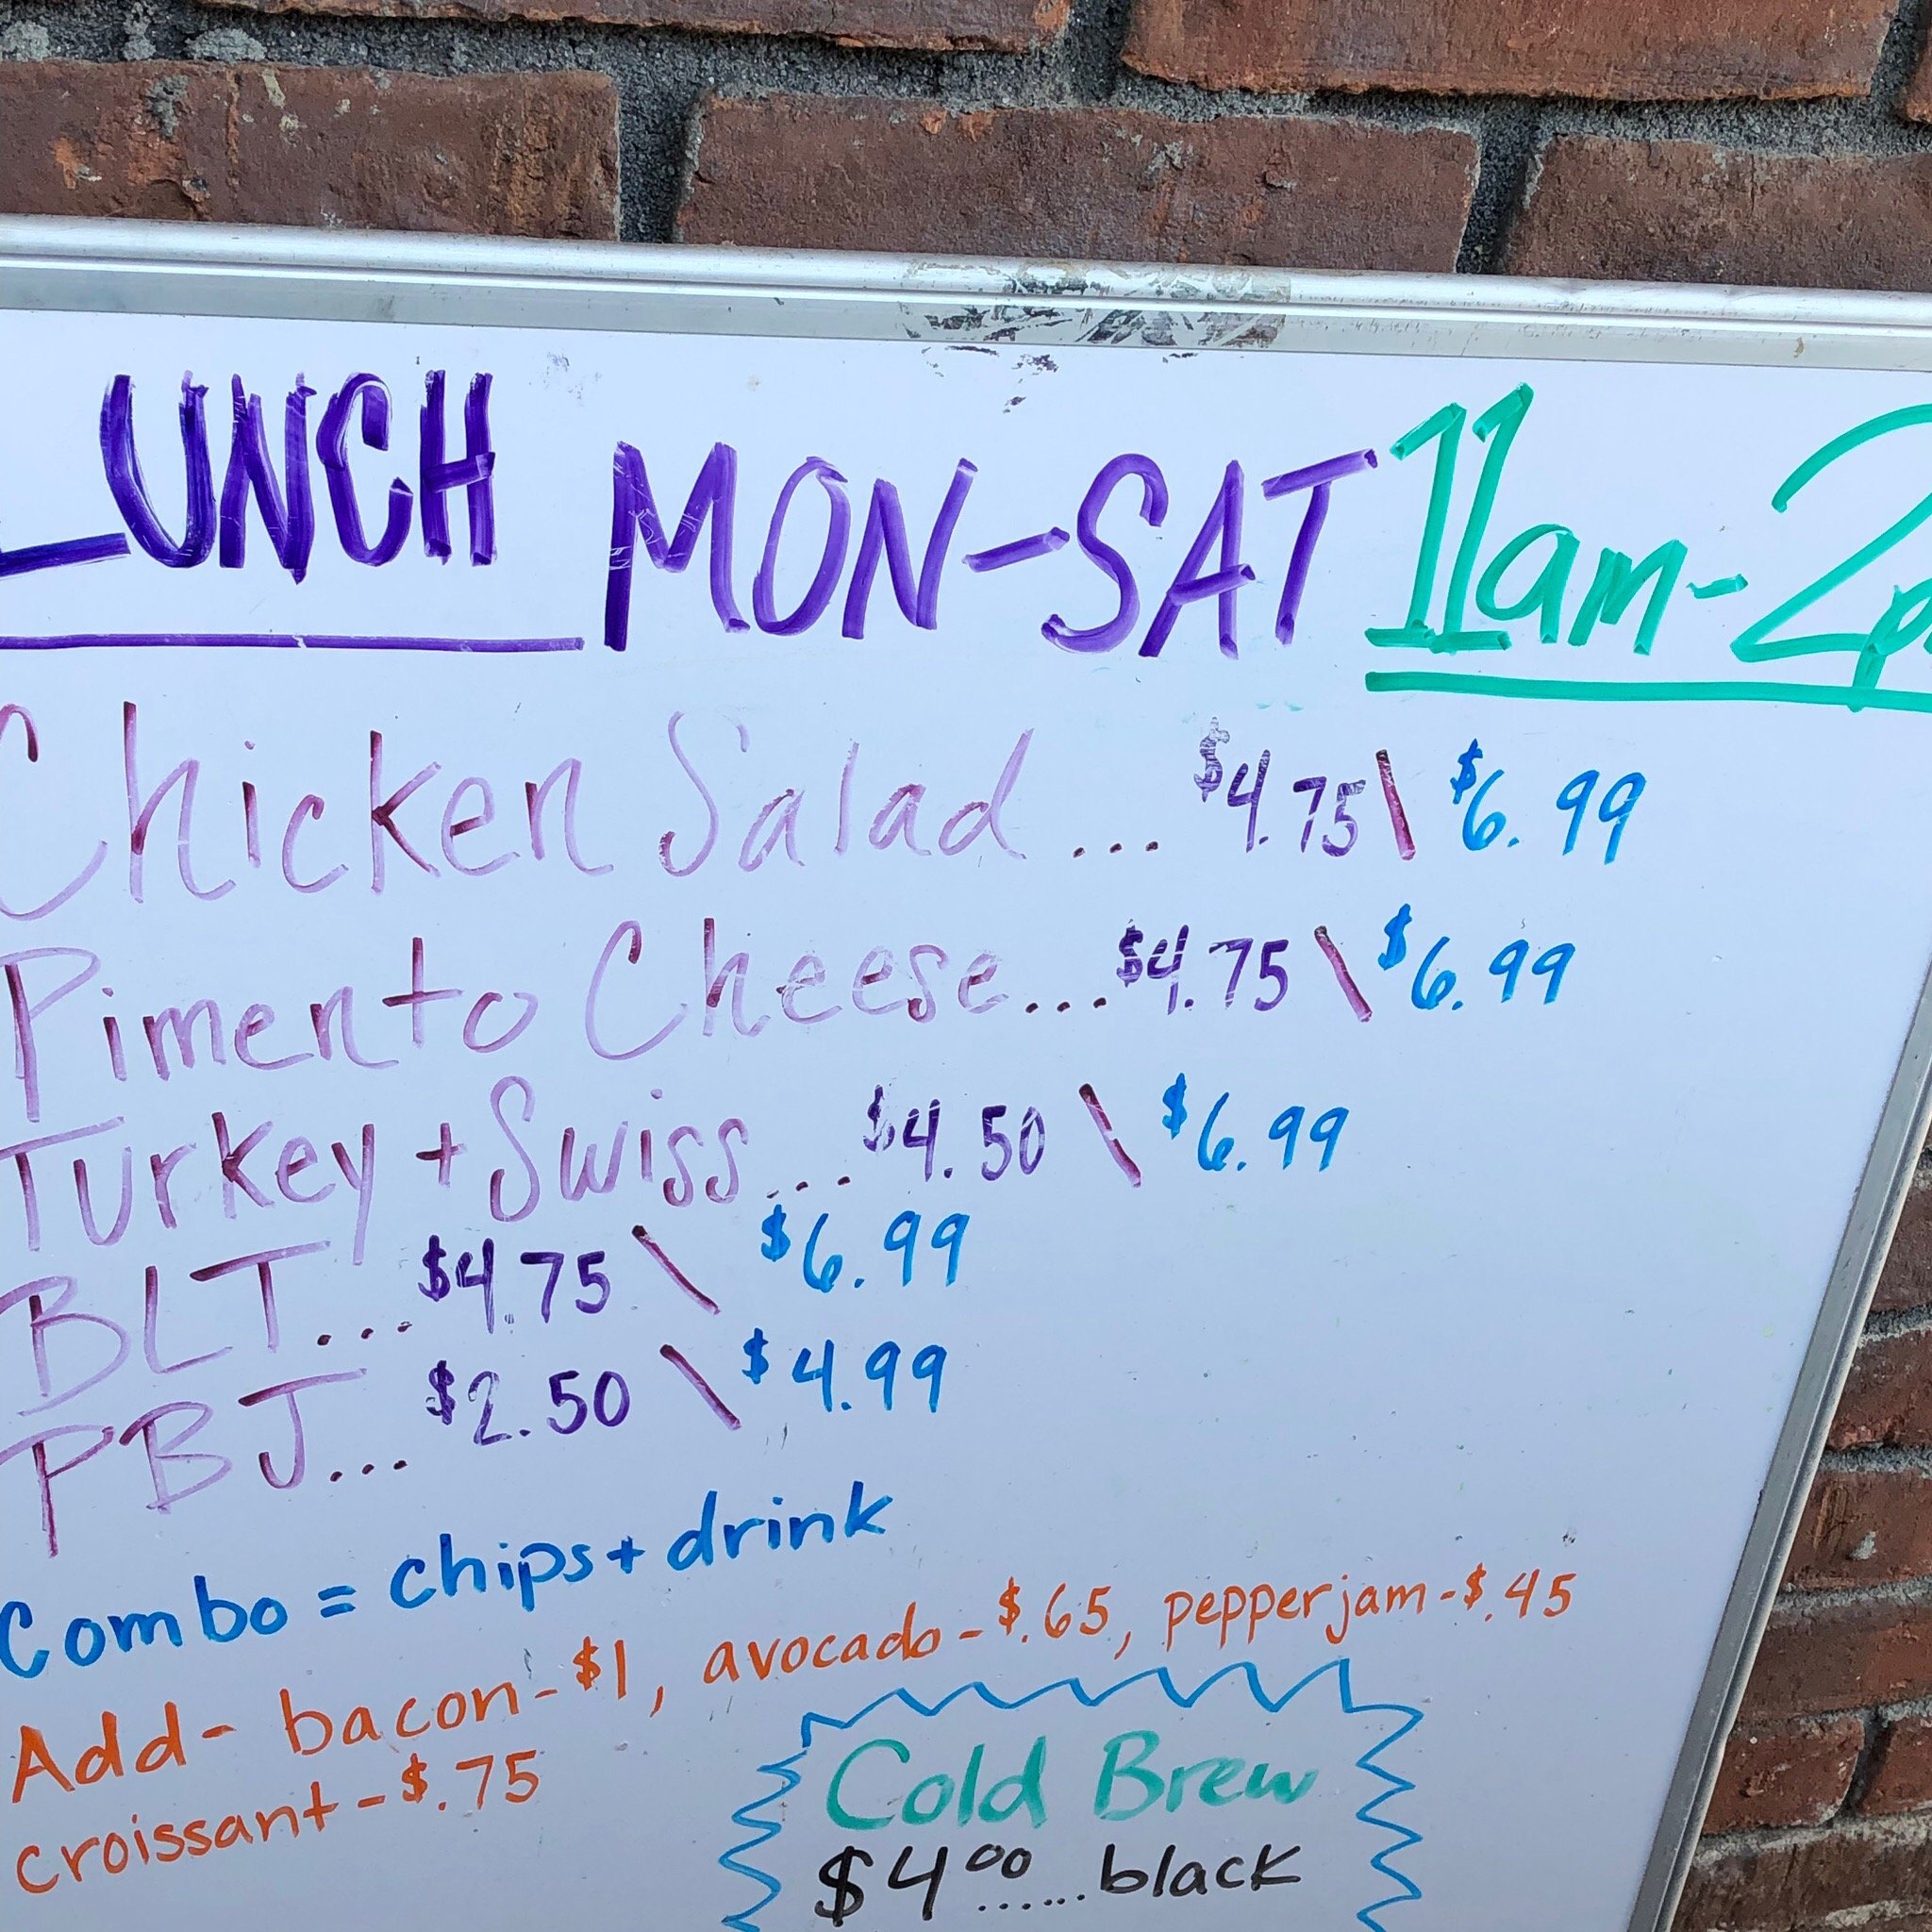 LUNCH MON-SAT 11am-2p
Chicken Salad ... $4.75 \ $6.99
Pimento Cheese... $4.75 \ $6.99
Turkey + Swiss ... $4.50 \ $6.99
BLT... $4.75 \ $6.99
PBJ... $2.50 \ $4.99
Combo = chips + drink
Add- bacon-$1, avocado-$.65, pepper jam-$.45
croissant-$.75
Cold Brew
$4.00 ...... black